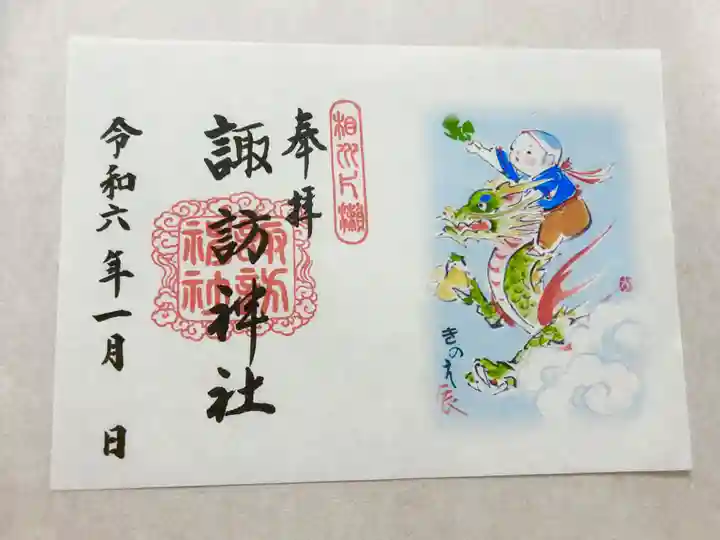 奉拝
相州片瀬
諏訪神社
諏訪
神社
令和六年一月 日
きのえ辰